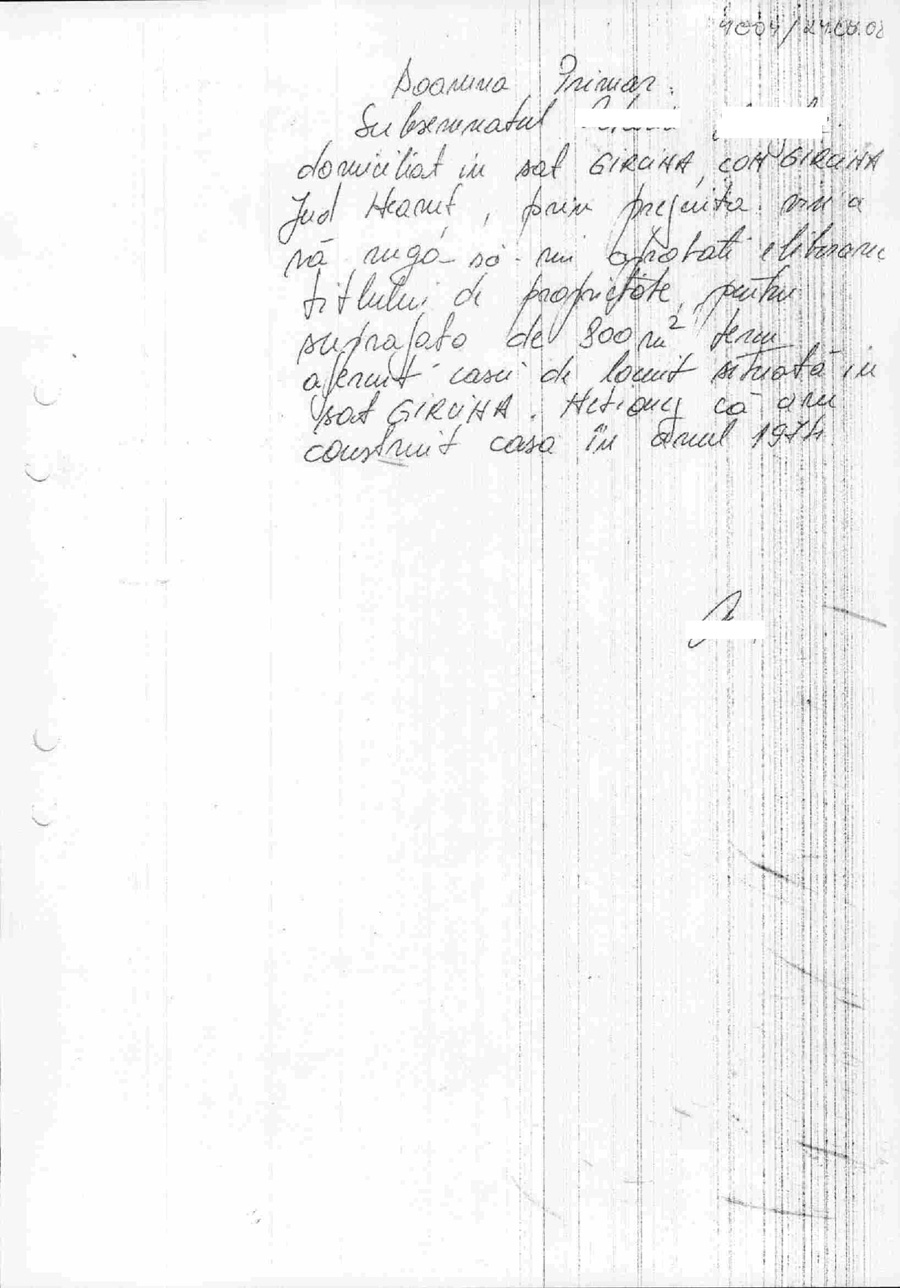 4004/24.08.08
Doamna Primar.
Subsemnatul
domiciliat in sat GIRCINA, COM GIRCINA
Jud Neamt, prin prezenta vin a
vă rugă să-mi aprobati eliberarea
titlului de proprietate, pentru
suprafata de 800 m² teren
aferent casei de locuit situată in
sat GIRCINA. Mentionez că am
construit casa în anul 1974